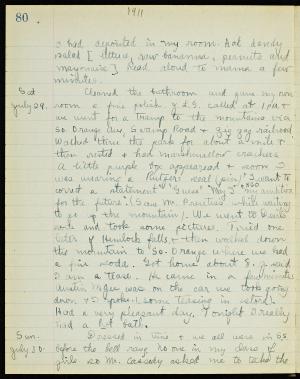 80
1911
I had deposited in my room. Ate dandy
salad [lettuce, raw bananna, peanuts and
mayonaise]. Read aloud to mama a few
minutes.
Sat
July 29.
Cleaned the bathroom and gave my own
room a fine polish. called at 1 P.M. &
we went for a tramp to the mountains via
So. Orange Ave, Swamp Road & zig zag railroad
Walked thro the park for about a mile &
then rested & had marshmallow crackers.
A little purple appeared & soon I
was wearing a Rutgers' seal pin! I want to
covet a statement
for the future. (Saw Mr. while waiting
to go up the mountain). We went to
and took some pictures. Tried one
later of Hemlock falls & then walked down
the mountain to So. Orange where we had
a fine soda. Got home about 5. said
I am a tease. He came in a few minutes
was on the car we took going
down & spoke (some teasing in store).
Had a very pleasant day. Tonight I really
had a hot bath.
Sun.
July 30.
Dressed in time & we all were in SS
before the bell rang. No one in my class of
girls so Mr. Cassedy asked me to take the